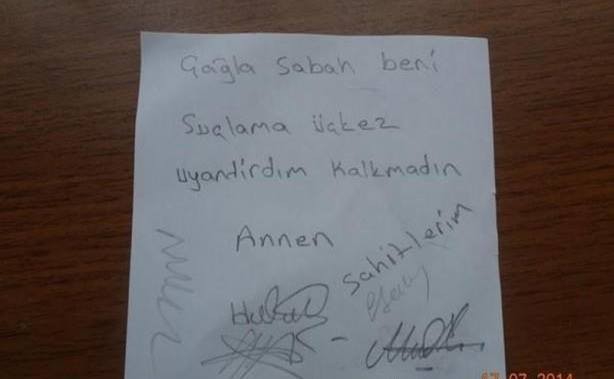 Çağla Sabah beni
Suçlama üçkez
uyandirdim Kalkmadın
Annen
Şahitlerim
17 07 2014